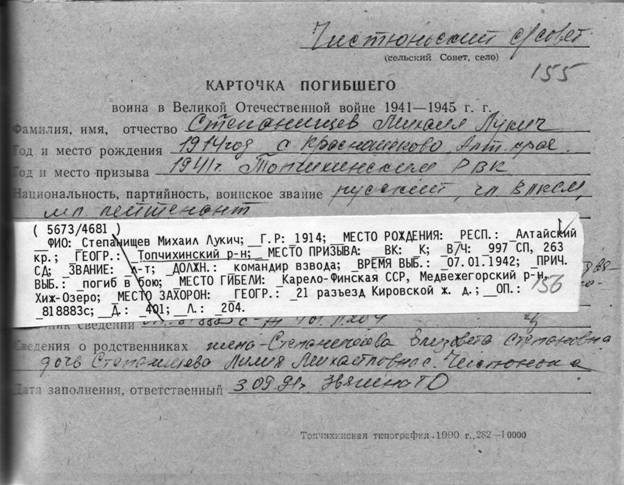 Чистюньский с/совет
(сельский Совет, село)
155
КАРТОЧКА ПОГИБШЕГО
воина в Великой Отечественной войне 1941—1945 г. г.
Фамилия, имя, отчество Степанищев Михаил Лукич
Год и место рождения 1914год с Алт. края
Год и место призыва 1941г. Топчихинским РВК
Национальность, партийность, воинское звание русский, чл ВЛКСМ,
мл лейтенант
( 5673/4681 )
__ФИО: Степанищев Михаил Лукич;__Г.Р: _1914; __МЕСТО РОЖДЕНИЯ: РЕСП.: _Алтайский
кр.; __ГЕОГР.: _Топчихинский р-н;__МЕСТО ПРИЗЫВА: ВК: К; _В/Ч: _997 СП, 263
СД; _ЗВАНИЕ: _л-т; _ДОЛЖН.: _командир взвода; _ВРЕМЯ ВЫБ.: _07.01.1942; _ПРИЧ.
ВЫБ.: _погиб в бою; МЕСТО ГИБЕЛИ: _Карело-Финская ССР, Медвежегорский р-н,
Хиж-Озеро; _МЕСТО ЗАХОРОН: _ГЕОГР.: _21 разъезд Кировской ж. д.; __ОП.:
_818883с; __Д.: _401; __Л.: _204.
156
сведений
Сведения о родственниках жена - Елизавета Степановна
дочь Лилия Михайловна с. Чистюнька
Дата заполнения, ответственный 3.09.91г.
Топчихинская типография. 1990 г., 282—10000